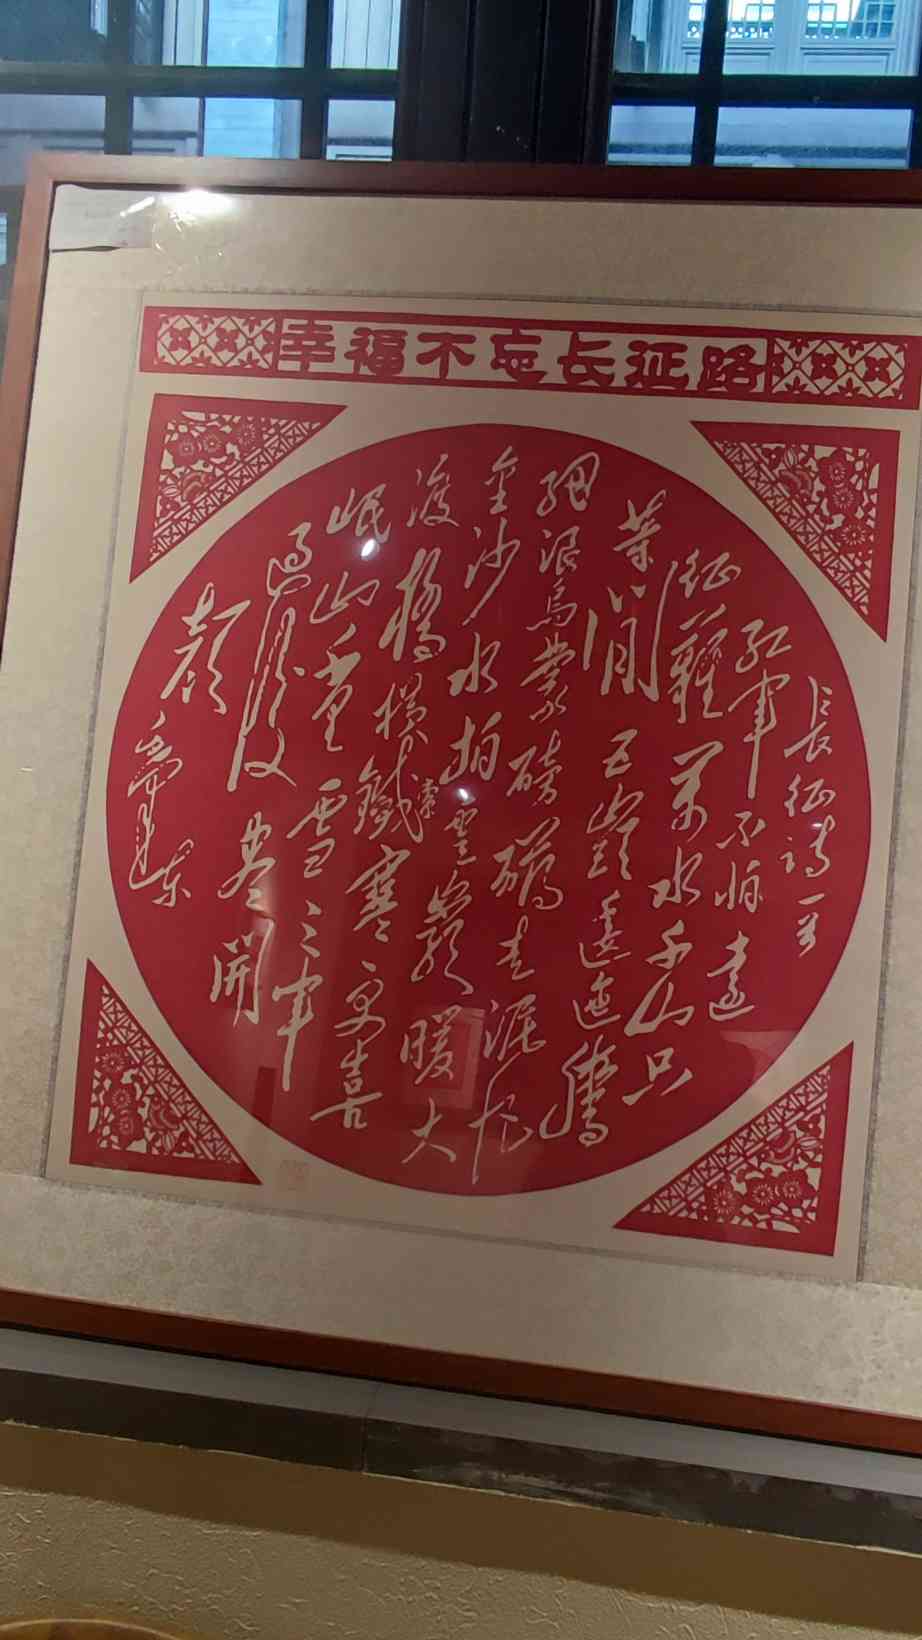 幸福不忘长征路
長征詩一首
紅軍不怕遠
征難萬水千山只
等閒五嶺逶迤騰
細浪烏蒙磅礴走泥丸
金沙水拍雲崖暖大
渡橋橫鐵索寒更喜
岷山千里雪三軍
過後盡開
顏
毛澤東